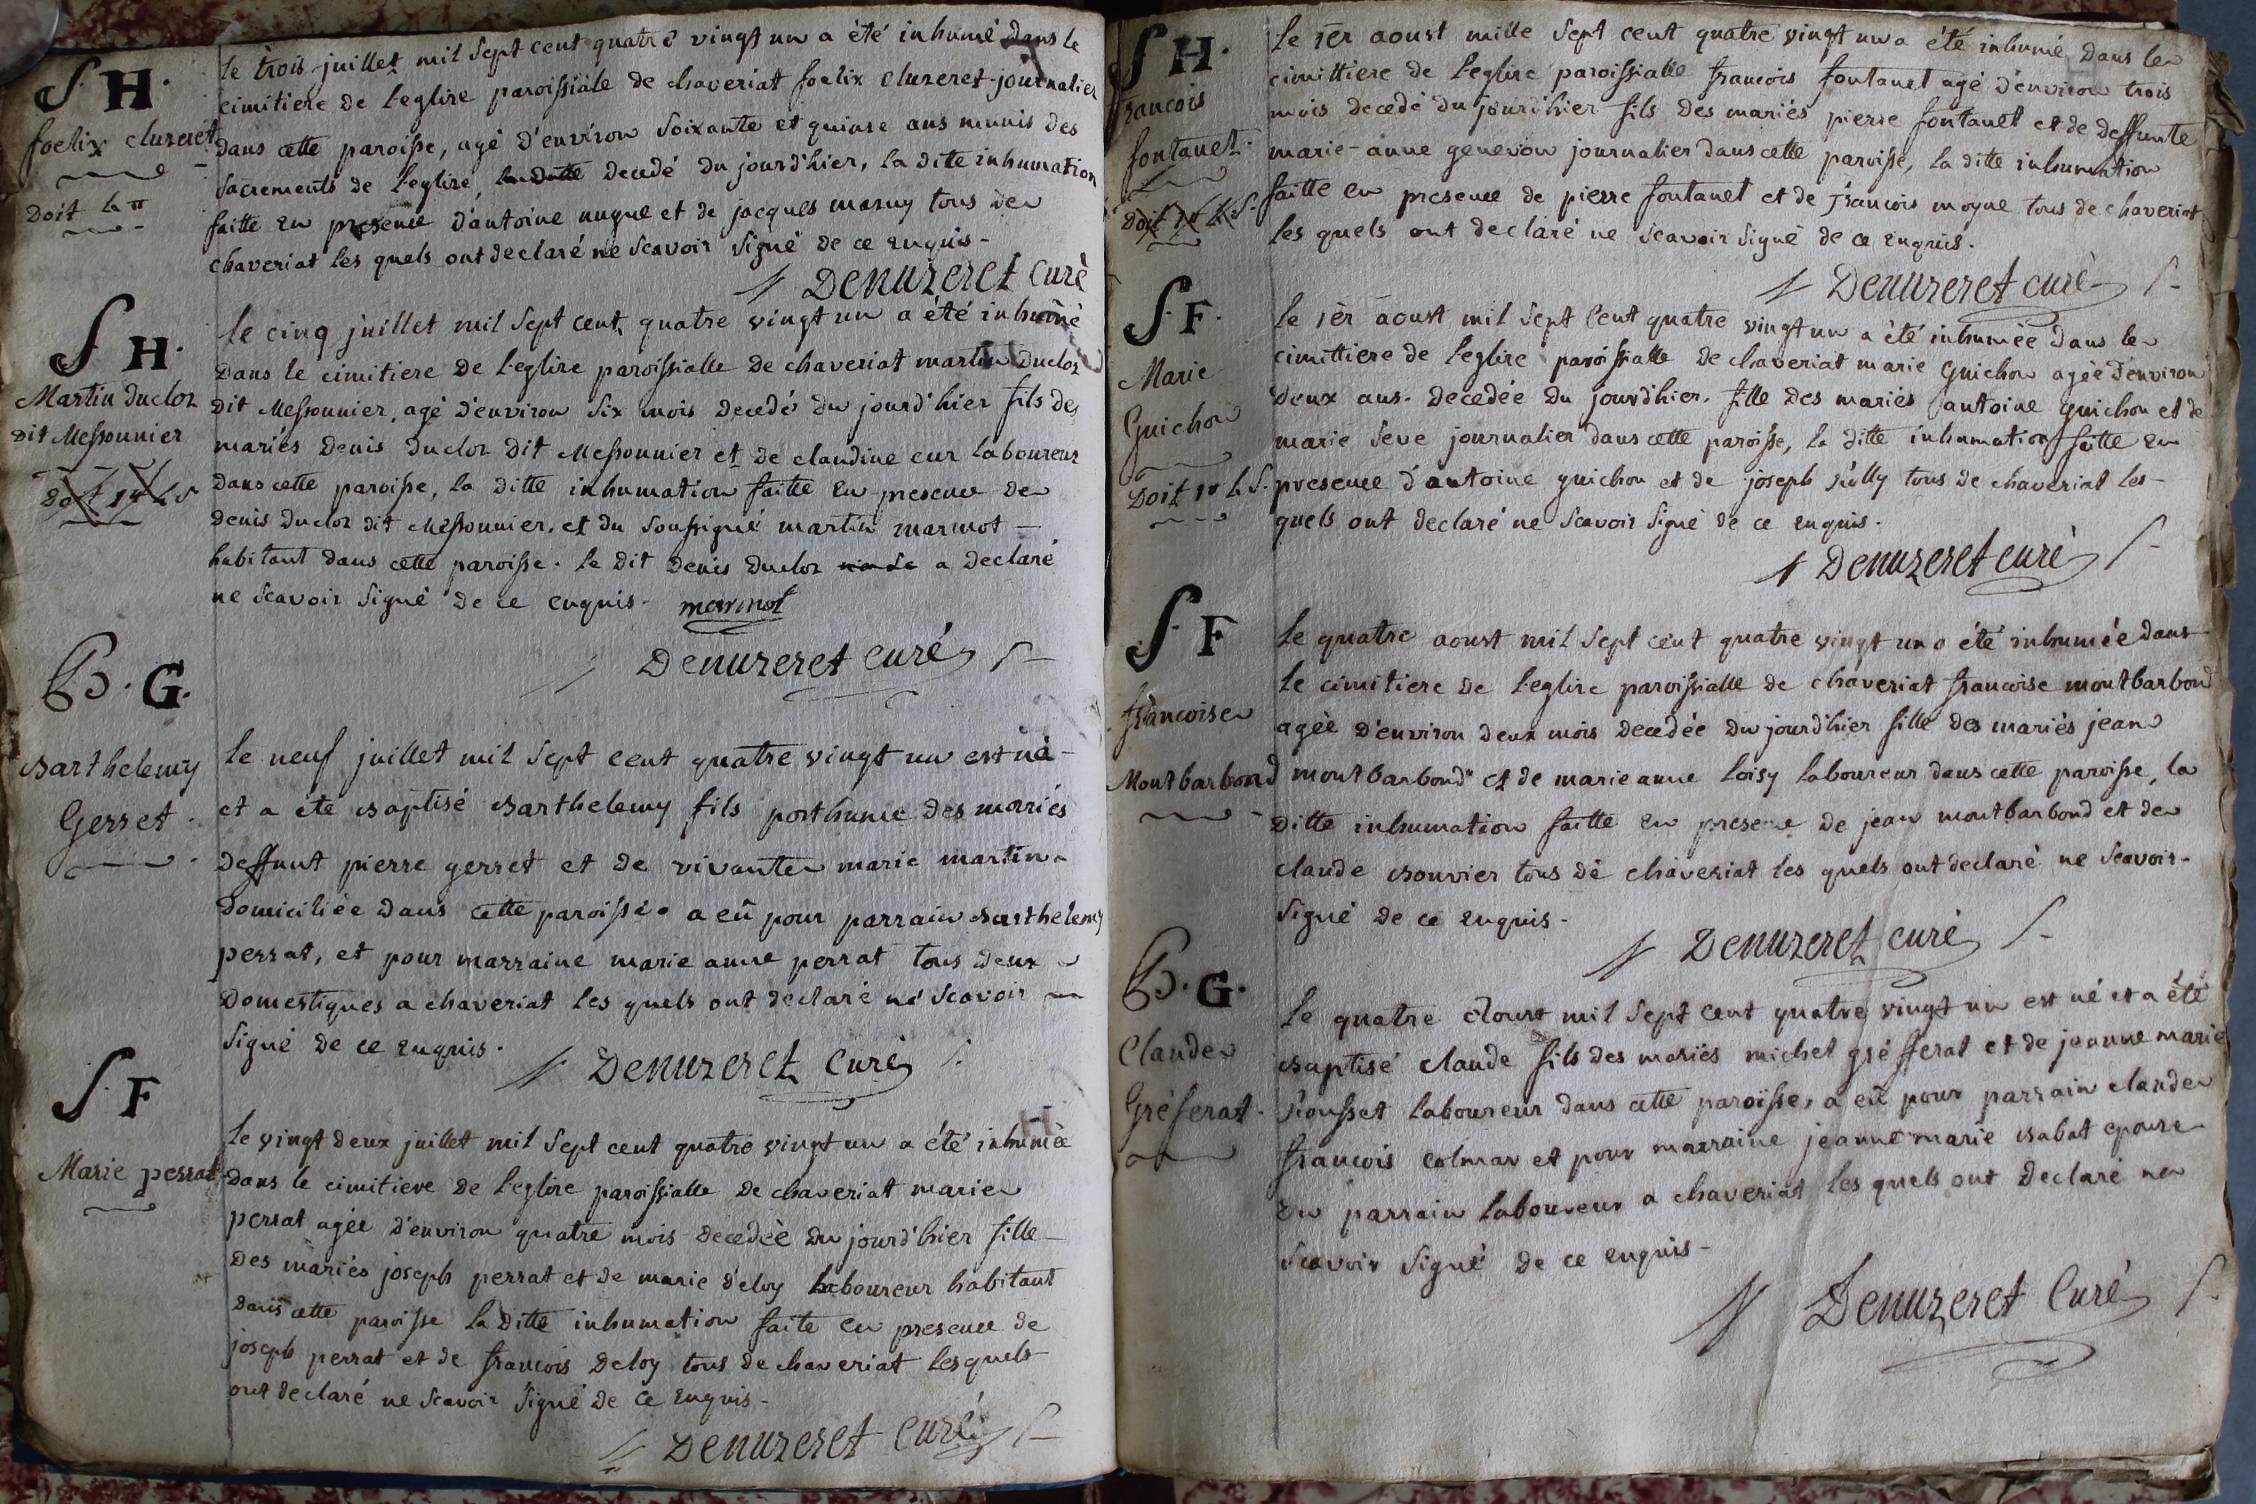 S. H.
foelix cluzeret
Doit
le trois juillet mil sept cent quatre vingt un a été inhumé dans le
cimitiere de l'eglise paroissiale de chaveriat foelix cluzeret journalier
dans cette paroisse, agé d'environ soixante et quinse ans munis des
sacrements de l'eglise, decedé du jourd'hier, la dite inhumation
faitte en presence d'antoine nugue et de jacques masuy tous de
chaveriat les quels ont declaré ne scavoir signé de ce enquis-
Denuzeret curè
S. H.
Martin Ducloz
dit Messonnier
Doit 14 L S
le cinq juillet mil sept cent quatre vingt un a été inhumé
dans le cimitiere de l'eglise paroissialle de chaveriat martin Ducloz
dit Messonnier, agé d'environ six mois decedé du jourd'hier fils des
mariés Denis Ducloz dit Messonnier et de claudine cur laboureur
dans cette paroisse, la ditte inhumation faitte en presence de
denis Ducloz dit Messonnier, et du soussigné martin marmot -
habitant dans cette paroisse. le dit Denis Ducloz a declaré
ne scavoir signé de ce enquis. marmot
Denuzeret curé
B. G.
Barthelemy
Gerret.
le neuf juillet mil sept cent quatre vingt un est né -
et a eté Baptisé Barthelemy fils posthume des mariés
deffunt pierre gerret et de vivante marie martin
domiciliée dans cette paroisse. a eû pour parrain Barthelemy
perrat, et pour marraine marie anne perrat tous deux
domestiques a chaveriat les quels ont declaré ne scavoir
signé de ce enquis.
Denuzeret Curé
S. F
Marie perrat
le vingt deux juillet mil sept cent quatre vingt un a été inhumée
dans le cimitiere de l'eglise paroissialle de chaveriat marie
perrat agée d'environ quatre mois decedée du jourd'hier fille -
des mariés joseph perrat et de marie deloy laboureur habitant
dans cette paroisse la ditte inhumation faite en presence de
joseph perrat et de francois Deloy tous de chaveriat lesquels
ont declaré ne scavoir signé de ce enquis-
Denuzeret Curé
S. H.
francois
fontanet.
Doit L S.
le 1er aoust mille sept cent quatre vingt un a été inhumé dans le
cimittiere de l'eglise paroissialle francois fontanet agé d'environ trois
mois decedé du jourd'hier fils des mariés pierre fontanet et de deffunte
marie-anne genevou journalier dans cette paroisse, la ditte inhumation
faitte en presence de pierre fontanet et de francois moyne tous de chaveriat
les quels ont declaré ne scavoir signé de ce enquis.
Denuzeret curé
S. F.
Marie
Guichon
Doit L S.
le 1er aoust mil sept cent quatre vingt un a été inhumée dans le
cimittiere de l'eglise paroissialle de chaveriat marie Guichon agée d'environ
deux ans. decedée du jourd'hier. fille des mariés antoine guichon et de
marie seve journalier dans cette paroisse, la ditte inhumation faitte en
presence d'antoine guichon et de joseph tous de chaveriat les -
quels ont declaré ne scavoir signé de ce enquis.
Denuzeret curé
S. F
francoise
Montbarbond
le quatre aoust mil sept cent quatre vingt un a été inhumée dans
le cimitiere de l'eglise paroissialle de chaveriat francoise montbarbond
agée d'environ deux mois decedée du jourd'hier fille des mariés jean
montbarbond et de marie anne loisy laboureur dans cette paroisse, la
ditte inhumation faitte en presence de jean montbarbond et de
claude Bouvier tous de chaveriat les quels ont declaré ne scavoir-
signé de ce enquis-
Denuzeret curé
B. G.
Claude
Gréferat.
le quatre aoust mil sept cent quatre vingt un est né et a été
Baptisé claude fils des mariés michel gréfferat et de jeanne marie
rousset laboureur dans cette paroisse, a eû pour parrain claude
francois colmar et pour marraine jeanne marie sabat epouse
du parrain laboureur a chaveriat les quels ont declaré ne
scavoir signé de ce enquis-
Denuzeret Curé